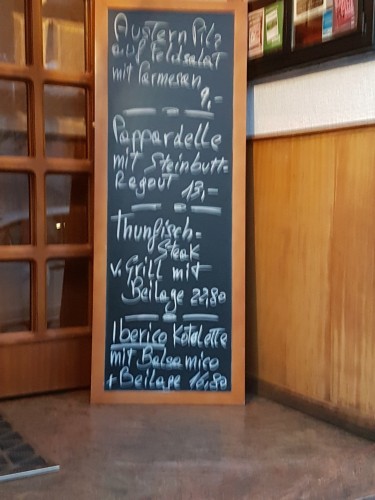 Austern Pilz
auf Feldsalat
mit Parmesan
9,-
Pappardelle
mit Steinbutt-
Ragout 13,-
Thunfisch-
Steak
v. Grill mit
Beilage 22,80
Iberico Kotelette
mit Balsamico
+ Beilage 16,80